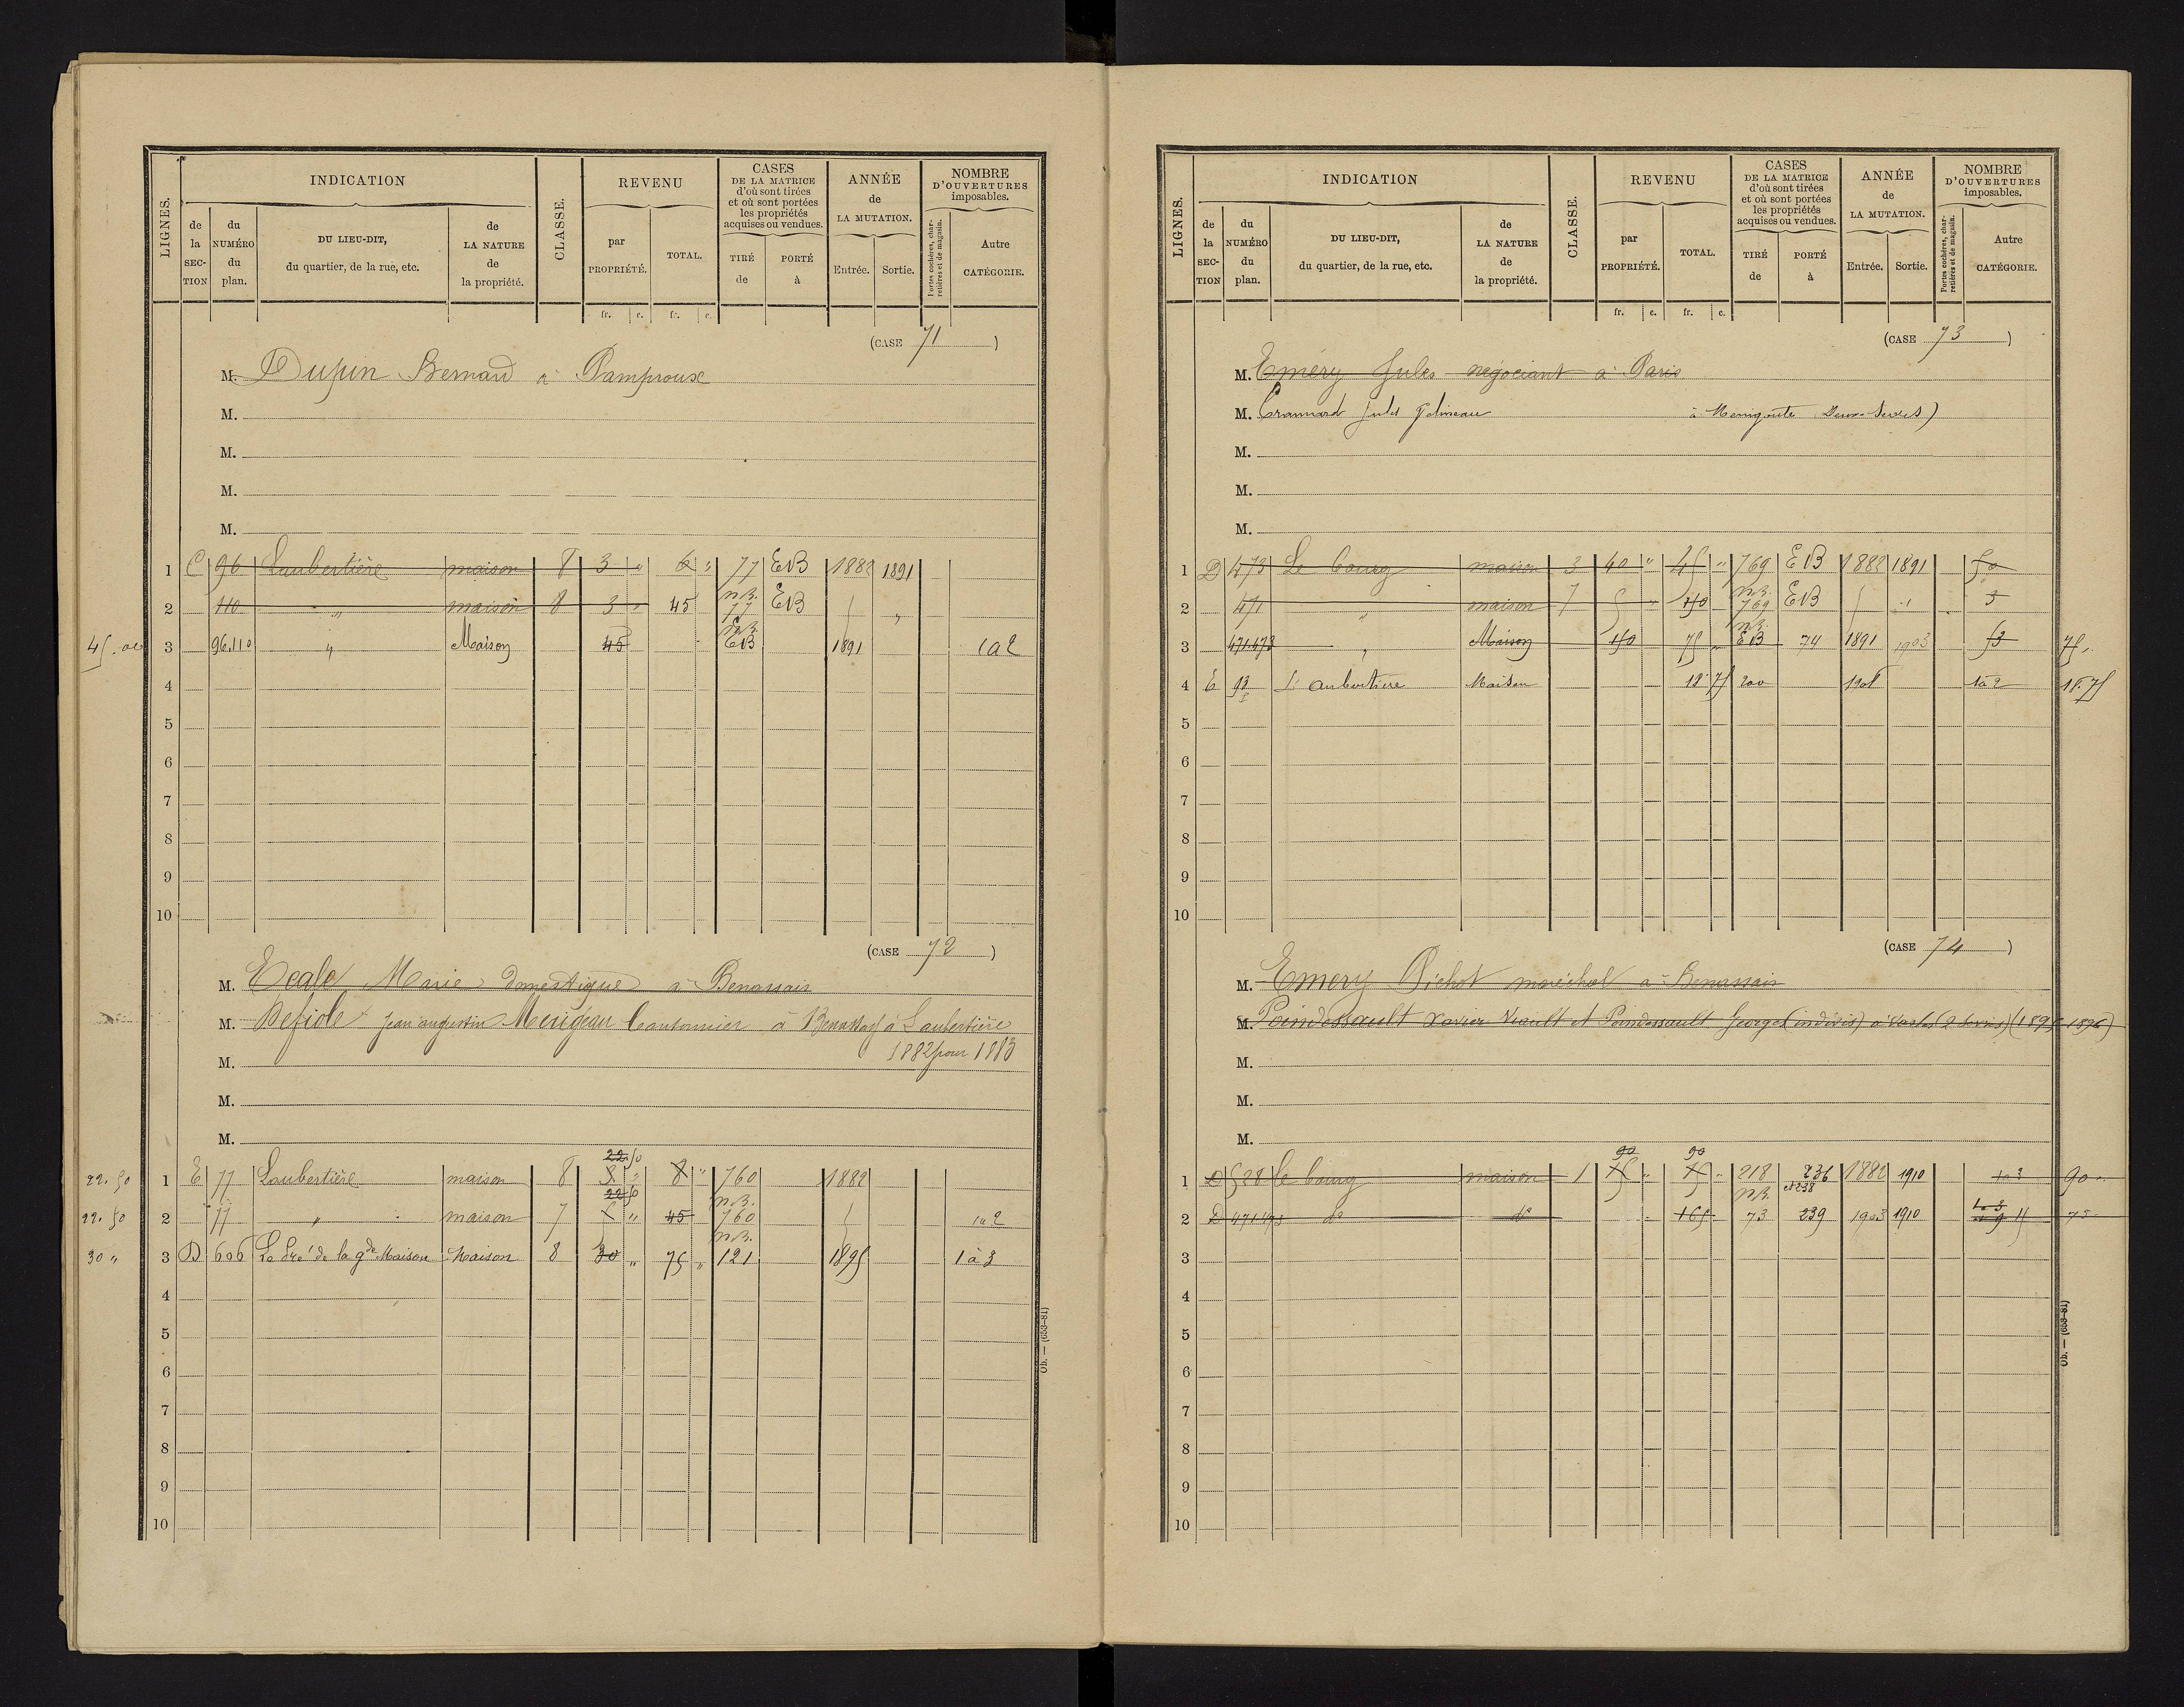 LIGNES.
INDICATION
de la SECTION
du NUMÉRO du plan.
DU LIEU-DIT, du quartier, de la rue, etc.
de LA NATURE de la propriété.
CLASSE.
REVENU
par PROPRIÉTÉ.
TOTAL.
CASES DE LA MATRICE d'où sont tirées et où sont portées les propriétés acquises ou vendues.
TIRÉ de
PORTÉ à
ANNÉE de LA MUTATION.
Entrée.
Sortie.
NOMBRE D'OUVERTURES imposables.
Portes cochères, charretières et de magasin.
Autre CATÉGORIE.
fr. c. fr. c.
(CASE 71)
M. Dupin Bernard à Pamproux
M.
M.
M.
M.
1 C 96 Laubertière maison 8 3 " 6 " 77 EB 1882 1891
2 110 " maison 8 3 " 45 n.B. 77 EB "
45.00 3 96.110 " Maison 45 n.B. EB 1891 1 à 2
4
5
6
7
8
9
10
(CASE 72)
M. Ecale Marie domestique à Benassais
M. Jean augustin Merigeau Cantonnier à Benassay à Laubertière
M. 1882 pour 1883
M.
M.
22.50
22.50 1 E 77 Laubertière maison 8 8 " 760 1882
22.50
22.50 2 77 " maison 7 " 45 n.B. 760 1 à 2
30 " 3 D 606 Le Pré de la gde Maison Maison 8 30 " 75 " n.B. 121 1895 1 à 3
4
5
6
7
8
9
10
Ob. — (653-81)
LIGNES.
INDICATION
de la SECTION
du NUMÉRO du plan.
DU LIEU-DIT, du quartier, de la rue, etc.
de LA NATURE de la propriété.
CLASSE.
REVENU
par PROPRIÉTÉ.
TOTAL.
CASES DE LA MATRICE d'où sont tirées et où sont portées les propriétés acquises ou vendues.
TIRÉ de
PORTÉ à
ANNÉE de LA MUTATION.
Entrée.
Sortie.
NOMBRE D'OUVERTURES imposables.
Portes cochères, charretières et de magasin.
Autre CATÉGORIE.
fr. c. fr. c.
(CASE 73)
M. Eméry Jules négociant à Paris
M. Jules à Menigoute Deux-Sèvres)
M.
M.
M.
1 D 473 Le bourg maison 3 40 " 45 " 769 EB 1882 1891
2 471 " maison 7 5 " n.B. 769 EB "
3 471.473 " Maison 150 75 " n.B. EB 74 1891 1903 75 "
4 E 93 L'aubertiere Maison 18 75 200 1à2 18.75
5
6
7
8
9
10
(CASE 74)
M. Emery Pichot maréchal à Benassais
M. Poindessault Xavier Viault et Poindessault Georges (indivis) (1895-1896)
M.
M.
M.
90 90
1 D 528 le bourg maison 1 75 " 75 " 218 236 et 238 1882 1910 1 à 3 90 "
2 D 471.473 do do 165 n.B. 73 239 1903 1910 75
3
4
5
6
7
8
9
10
Ob. — (653-81)